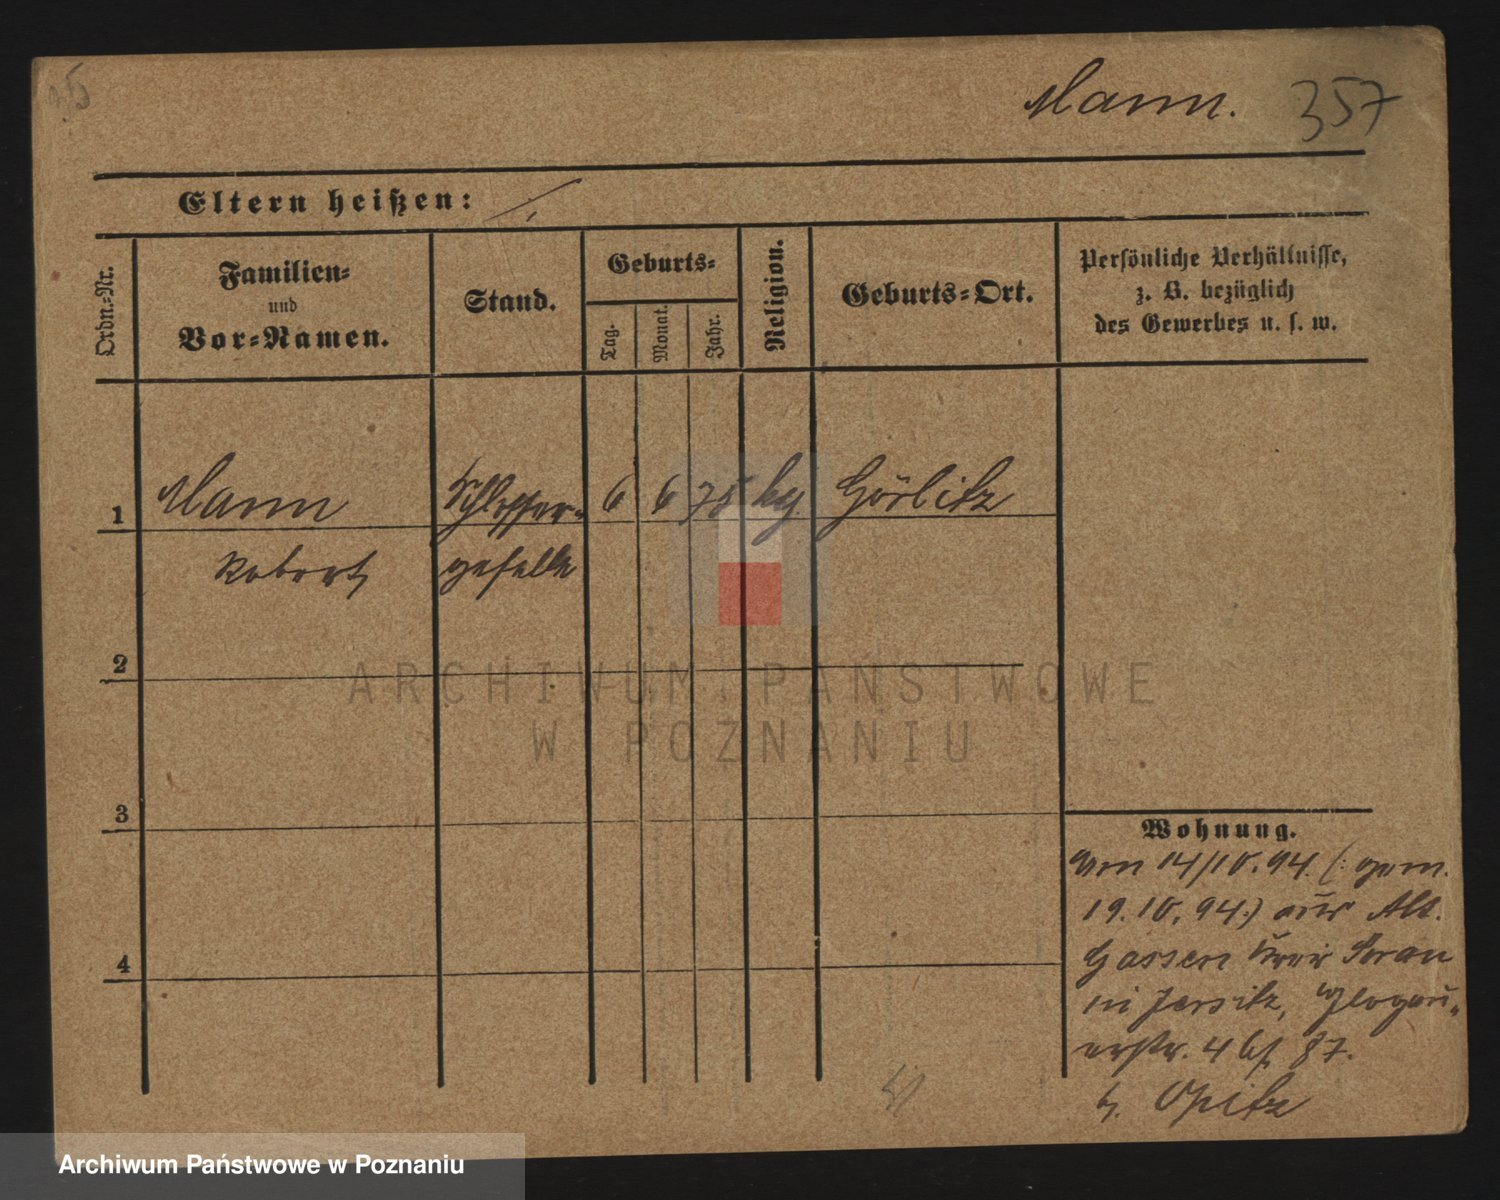 Mann. 357
Eltern heißen: /.
Ordn.-Nr.
Familien-
und
Vor-Namen.
Stand.
Geburts-
Tag.
Monat.
Jahr.
Religion.
Geburts-Ort.
Persönliche Verhältnisse,
z. B. bezüglich
des Gewerbes u. s. w.
1 Mann Schlosser- 6 6 75 kg Görlitz
Robert geselle
2
3
4
Wohnung.
Vom 14/10.94. (: gem.
19.10.94.) aus Alt.
Gassen Kreis Sorau
in Jersitz, Glogau-
erstr. 4 bf 87.
b. Opitz
ARCHIWUM PAŃSTWOWE
W POZNANIU
Archiwum Państwowe w Poznaniu